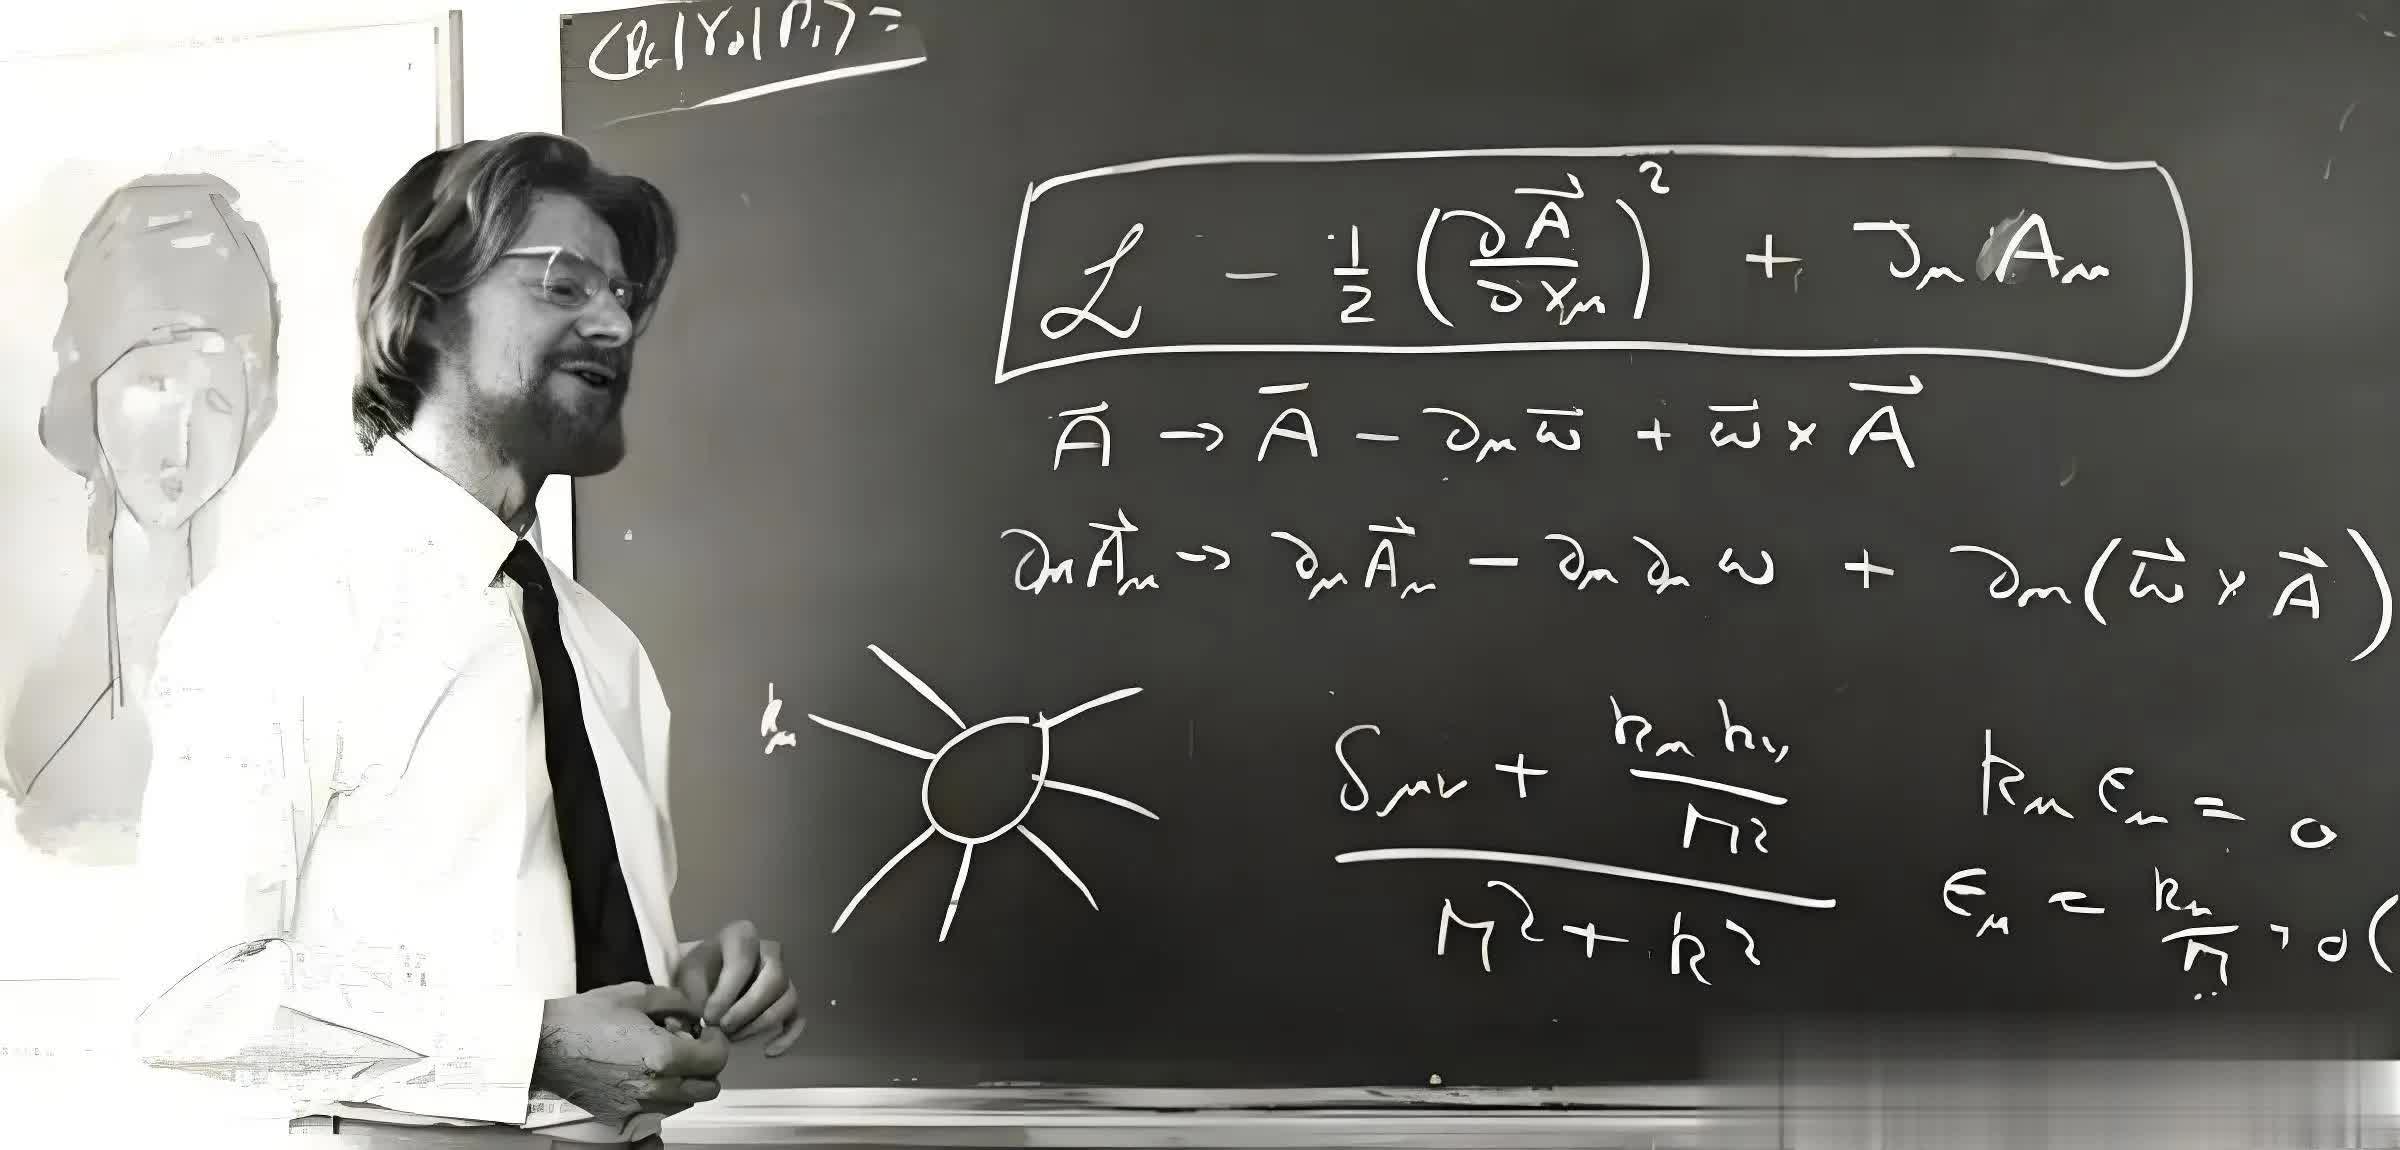 ℒ - 1/2 (∂A⃗/∂x_μ)² + J_μ A_μ
A̅ → A̅ - ∂_μ ω̅ + ω̅ × A⃗
∂_μ A⃗_μ → ∂_μ A⃗_μ - ∂_μ ∂_μ ω + ∂_μ (ω⃗ × A⃗)
k_μ
(δ_μν + k_μ k_ν / M²) / (M² + k²)
k_μ ε_μ = 0
ε_μ = k_μ / M , 0 (